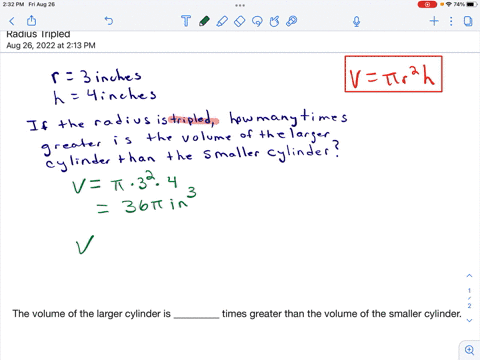 2:32 PM Fri Aug 26
74%
Radius Tripled
Aug 26, 2022 at 2:13 PM
r = 3 inches
h = 4 inches
V = πr²h
If the radius is tripled, how many times
greater is the volume of the larger
cylinder than the smaller cylinder?
V = π · 3² · 4
= 36π in³
V
1
2
The volume of the larger cylinder is _________ times greater than the volume of the smaller cylinder.